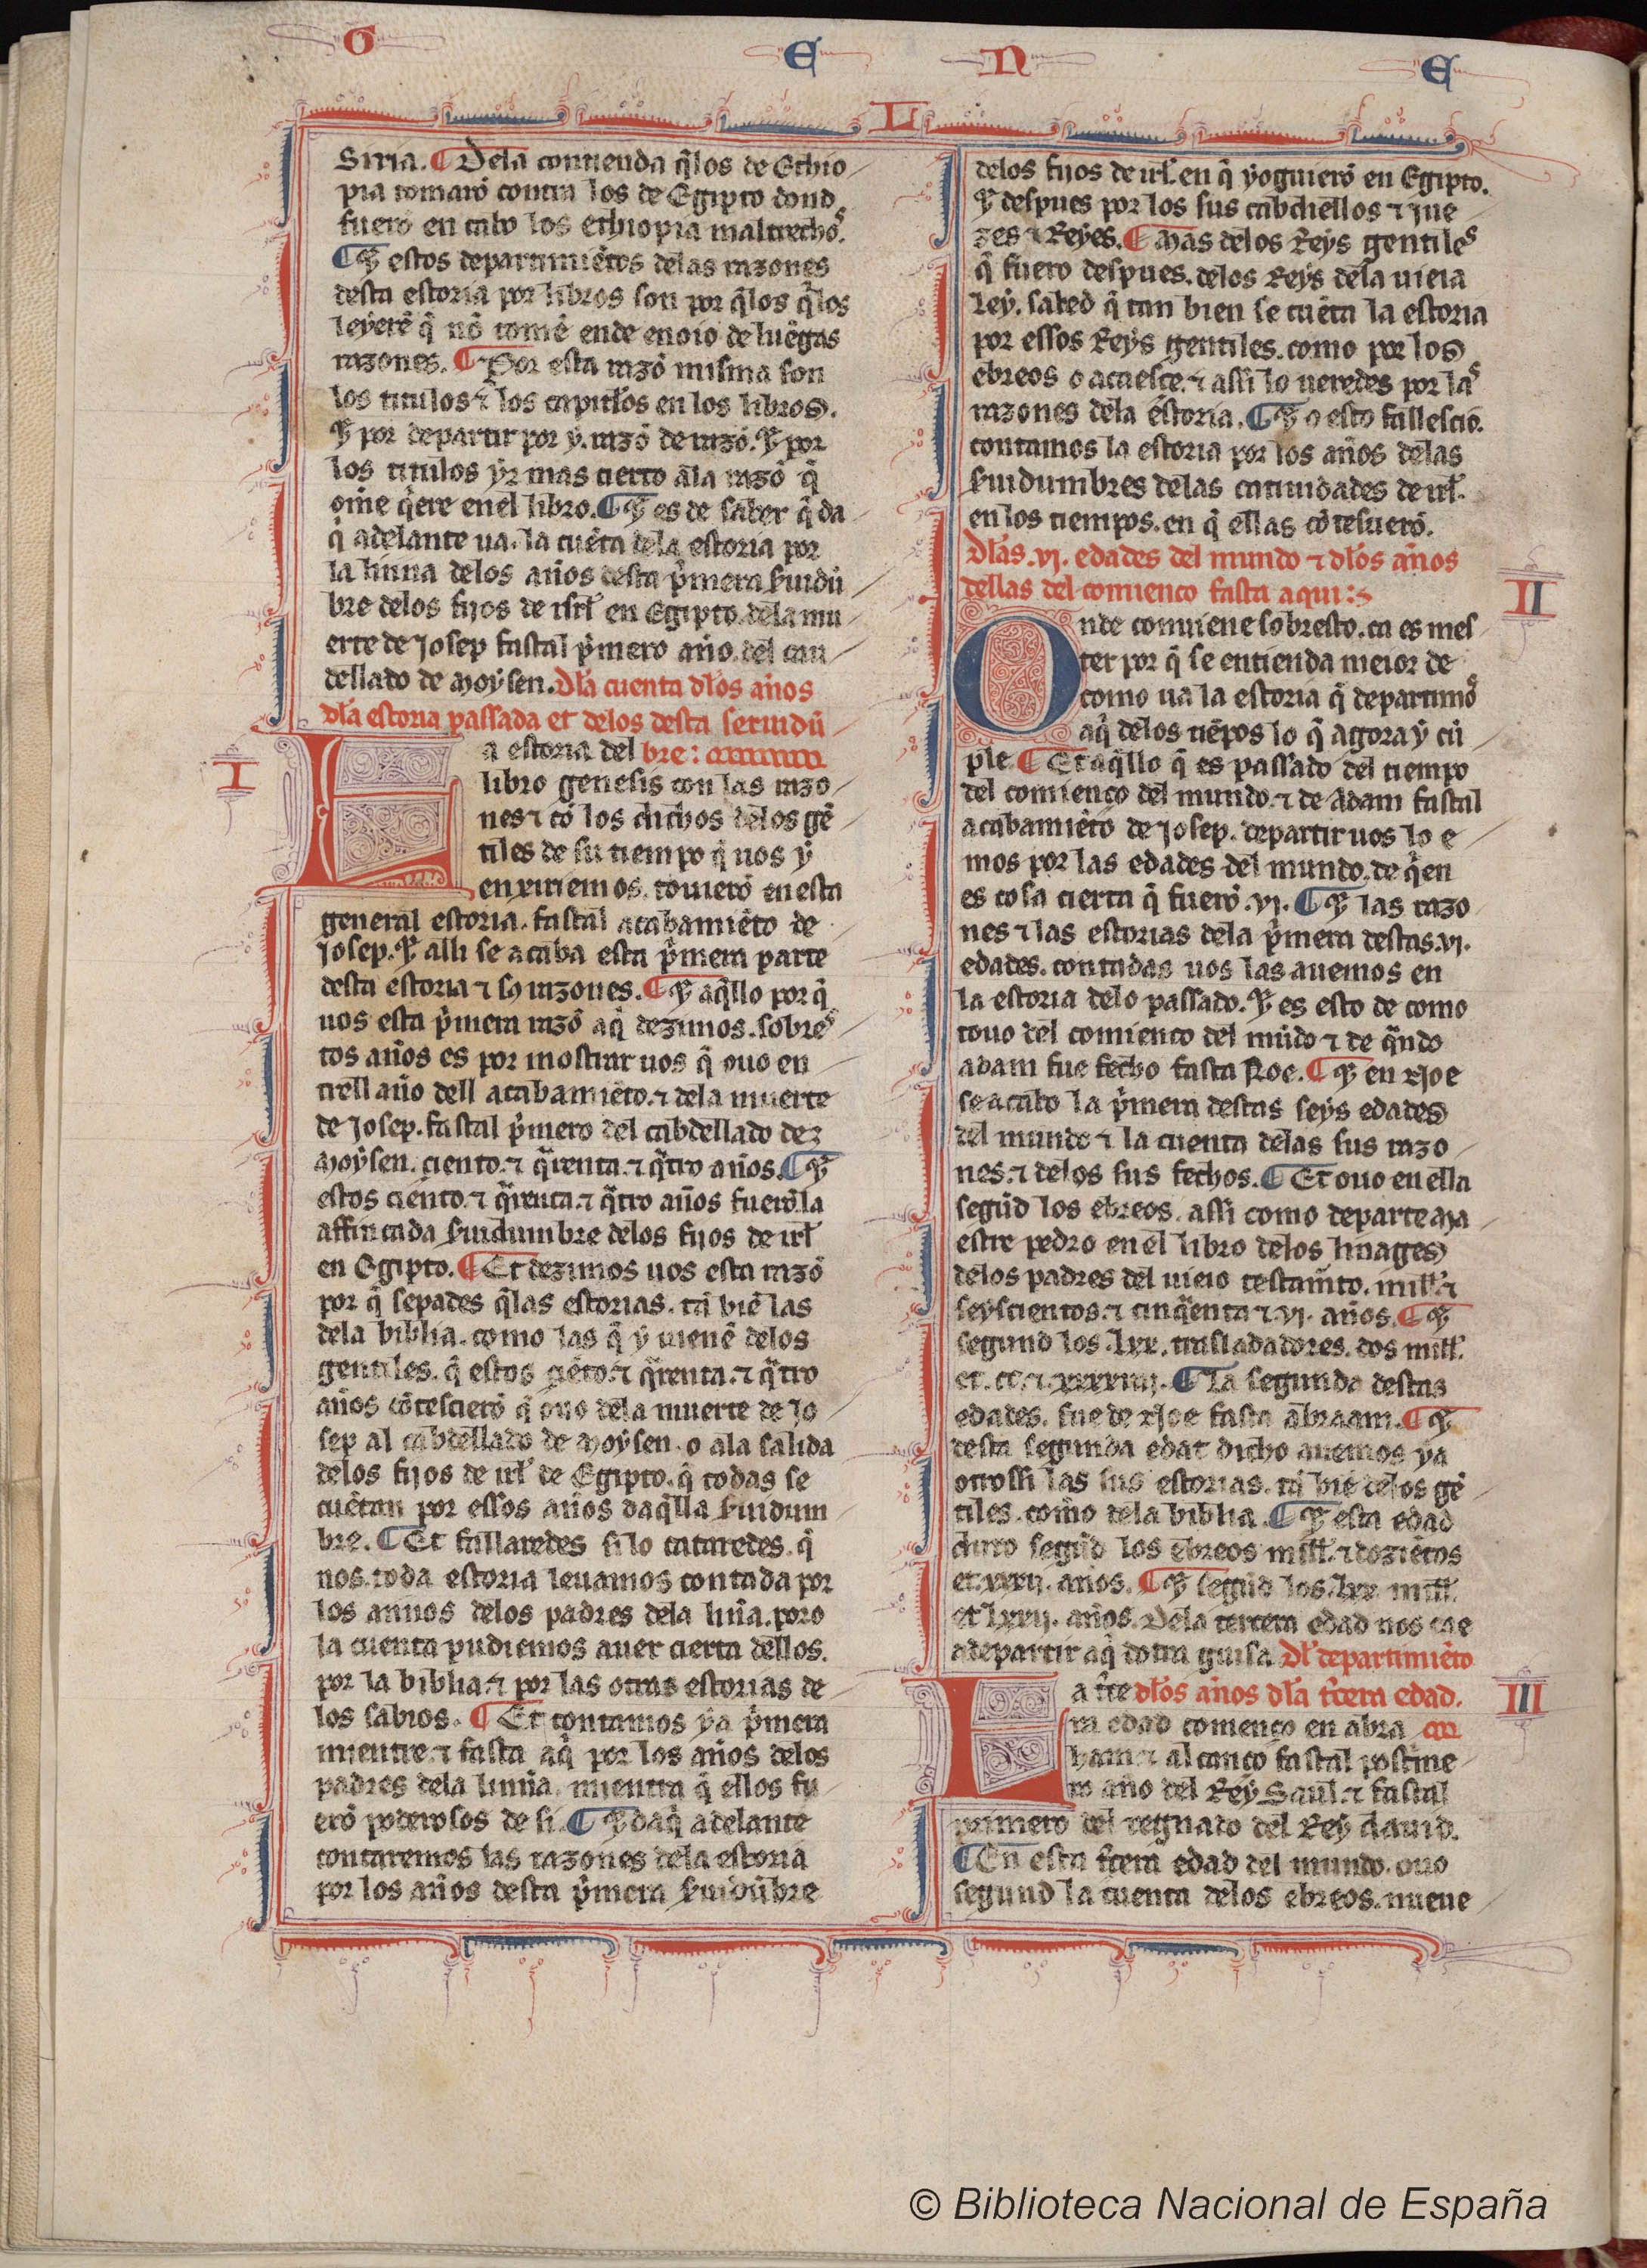 G E N E
LI
Siria. ¶ Dela contienda q̃los de Ethio
pia tomarõ contra los de Egipto dond
fuerõ en cabo los ethiopia maltrechos.
¶ ⁊ estos departimiẽtos delas razones
desta estoria por libros son por q̃los q̃los
leyerẽ q̃ nõ tomẽ ende enoio de luẽgas
razones. ¶ Por esta razõ misma son
los titulos ⁊ los capitłos en los libros.
⁊ por departir por y. razõ de razõ. ⁊ por
los titulos yr mas cierto ala razõ q̃
om̃e q̃ere en el libro. ¶ ⁊ es de saber q̃ da
q̃ adelante ua. la cuẽta dela estoria por
la linna delos años desta p̃mera ſuidũ
bre delos fijos de isrł en Egipto. dela mu
erte de Josep fastal p̃mero año. del cau
dellado de Moysen. Dła cuenta dłos años
dła estoria passada et delos desta seruidũ
I
La estoria del bre:
libro genesis con las razo
nes ⁊ cõ los dichos delos gẽ
tiles de su tiempo q̃ nos y
enxiriemos. touierõ en esta
general estoria. fastal acabamiẽto de
Josep. ⁊ alli se acaba esta p̃mera parte
desta estoria ⁊ sus razones. ¶ ⁊ aq̃llo por q̃
uos esta p̃mera razõ aq̃ dezimos. sobres
tos años es por mostrar uos q̃ ouo en
trell año dell acabamiẽto. ⁊ dela muerte
de Josep. fastal p̃mero del cabdellado de
Moysen. ciento. ⁊ q̃renta. ⁊ q̃tro años. ¶ ⁊
estos ciẽnto. ⁊ q̃renta. ⁊ q̃tro años fuerõ la
affincada ſuidumbre delos fijos de irł
en Egipto. ¶ Et dezimos uos esta razõ
por q̃ sepades q̃las estorias. tã biẽ las
dela biblia. como las q̃ y uienẽ delos
gentiles. q̃ estos ciẽto. ⁊ q̃renta. ⁊ q̃tro
años cõtescierõ q̃ ouo dela muerte de Jo
sep al cabdellado de Moysen. o ala salida
delos fijos de irł de Egipto. q̃ todas se
cuẽtan por essos años daq̃lla ſuidum
bre. ¶ Et fallaredes si lo cataredes. q̃
nos. toda estoria leuamos contada por
los annos delos padres dela liña. poro
la cuenta pudiemos auer cierta dellos.
por la biblia. ⁊ por las otras estorias de
los sabios. ¶ Et contamos ya p̃mera
mientre. ⁊ fasta aq̃ por los años delos
padres dela linna. mientra q̃ ellos fu
erõ poderosos de si. ¶ ⁊ daq̃ adelante
contaremos las razones dela estoria
por los años desta p̃mera ſuidũbre
delos fijos de irł. en q̃ yoguierõ en Egipto.
⁊ despues por los sus cabdiellos ⁊ jue
zes ⁊ Reyes. ¶ Mas delos Reys gentiles
q̃ fuero despues. delos Reys dela uieia
Ley. sabed q̃ tan bien se cuẽta la estoria
por essos Reys gentiles. como por los
ebreos o acaesce. ⁊ assi lo ueredes por las
razones dela estoria. ¶ ⁊ o esto fallescio.
contamos la estoria por los años delas
ſuidumbres delas catiuidades de irł.
en los tiempos. en q̃ ellas cõtesuerõ.
Dłas. vj. edades del mundo ⁊ dłos años
dellas del comienço fasta aqui:
II
Onde conuiene sobresto. ca es mes
ter por q̃ se entienda meior de
como ua la estoria q̃ departimos
aq̃ delos tiẽpos lo q̃ agora y cũ
ple. ¶ Et aq̃llo q̃ es passado del tiempo
del comienço del mundo. ⁊ de Adam fastal
acabamiẽto de Josep. departir uos lo e
mos por las edades del mundo. de q̃en
es cosa cierta q̃ fuerõ .vj. ¶ ⁊ las razo
nes ⁊ las estorias dela p̃mera destas .vj.
edades. contadas uos las auemos en
la estoria delo passado. ⁊ es esto de como
touo del comienço del mũdo ⁊ de q̃ndo
adam fue fecho fasta Noe. ¶ ⁊ en Noe
se acabo la p̃mera destas seys edades
del mundo ⁊ la cuenta delas sus razo
nes. ⁊ delos sus fechos. ¶ Et ouo en ella
segũd los ebreos. assi como departe Ma
estre pedro en el libro delos linages
delos padres del uieio testam̃to. mill. ⁊
seyscientos. ⁊ cinq̃enta ⁊ .vj. años. ¶ ⁊
segund los .lxx. trasladadores. dos mill.
et. cc. ⁊ xxxxiiij. ¶ La segunda destas
edades. fue de Noe fasta abraam. ¶ ⁊
desta segunda edat dicho auemos ya
otrossi las sus estorias. tã biẽ delos gẽ
tiles. como dela biblia. ¶ ⁊ esta edad
duro segũd los ebreos mill. ⁊ dozientos
et. xxij. años. ¶ ⁊ segũd los .lxx. mill.
et lxxij. años. Dela tercera edad nos cae
adepartir aq̃ dotra guisa. Dł departimiẽto
III
La t̃ce dłos años dła t̃cera edad.
ra edad començo en abra
ham ⁊ alcanço fastal postrime
ro año del Rey Saul. ⁊ fastal
primero del regnado del Rey dauid.
¶ En esta t̃cera edad del mundo. ouo
segund la cuenta delos ebreos. nueue
© Biblioteca Nacional de España